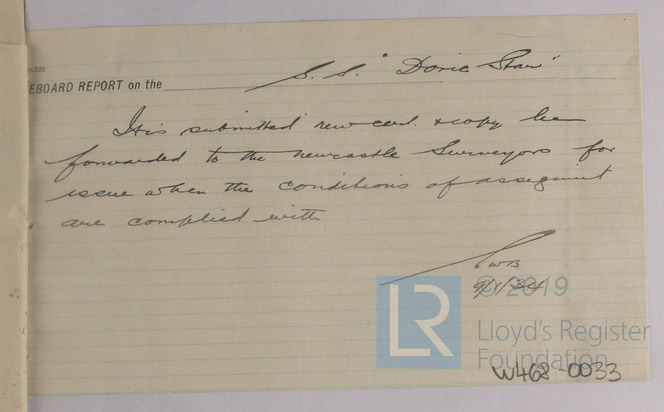 EBOARD REPORT on the S.S. "Doric Star"
It is submitted new cert. & copy be
forwarded to the Newcastle Surveyors for
issue when the conditions of assigment
are complied with
WB
9/1/34
LR © 2019
Lloyd's Register
Foundation
W468-0033